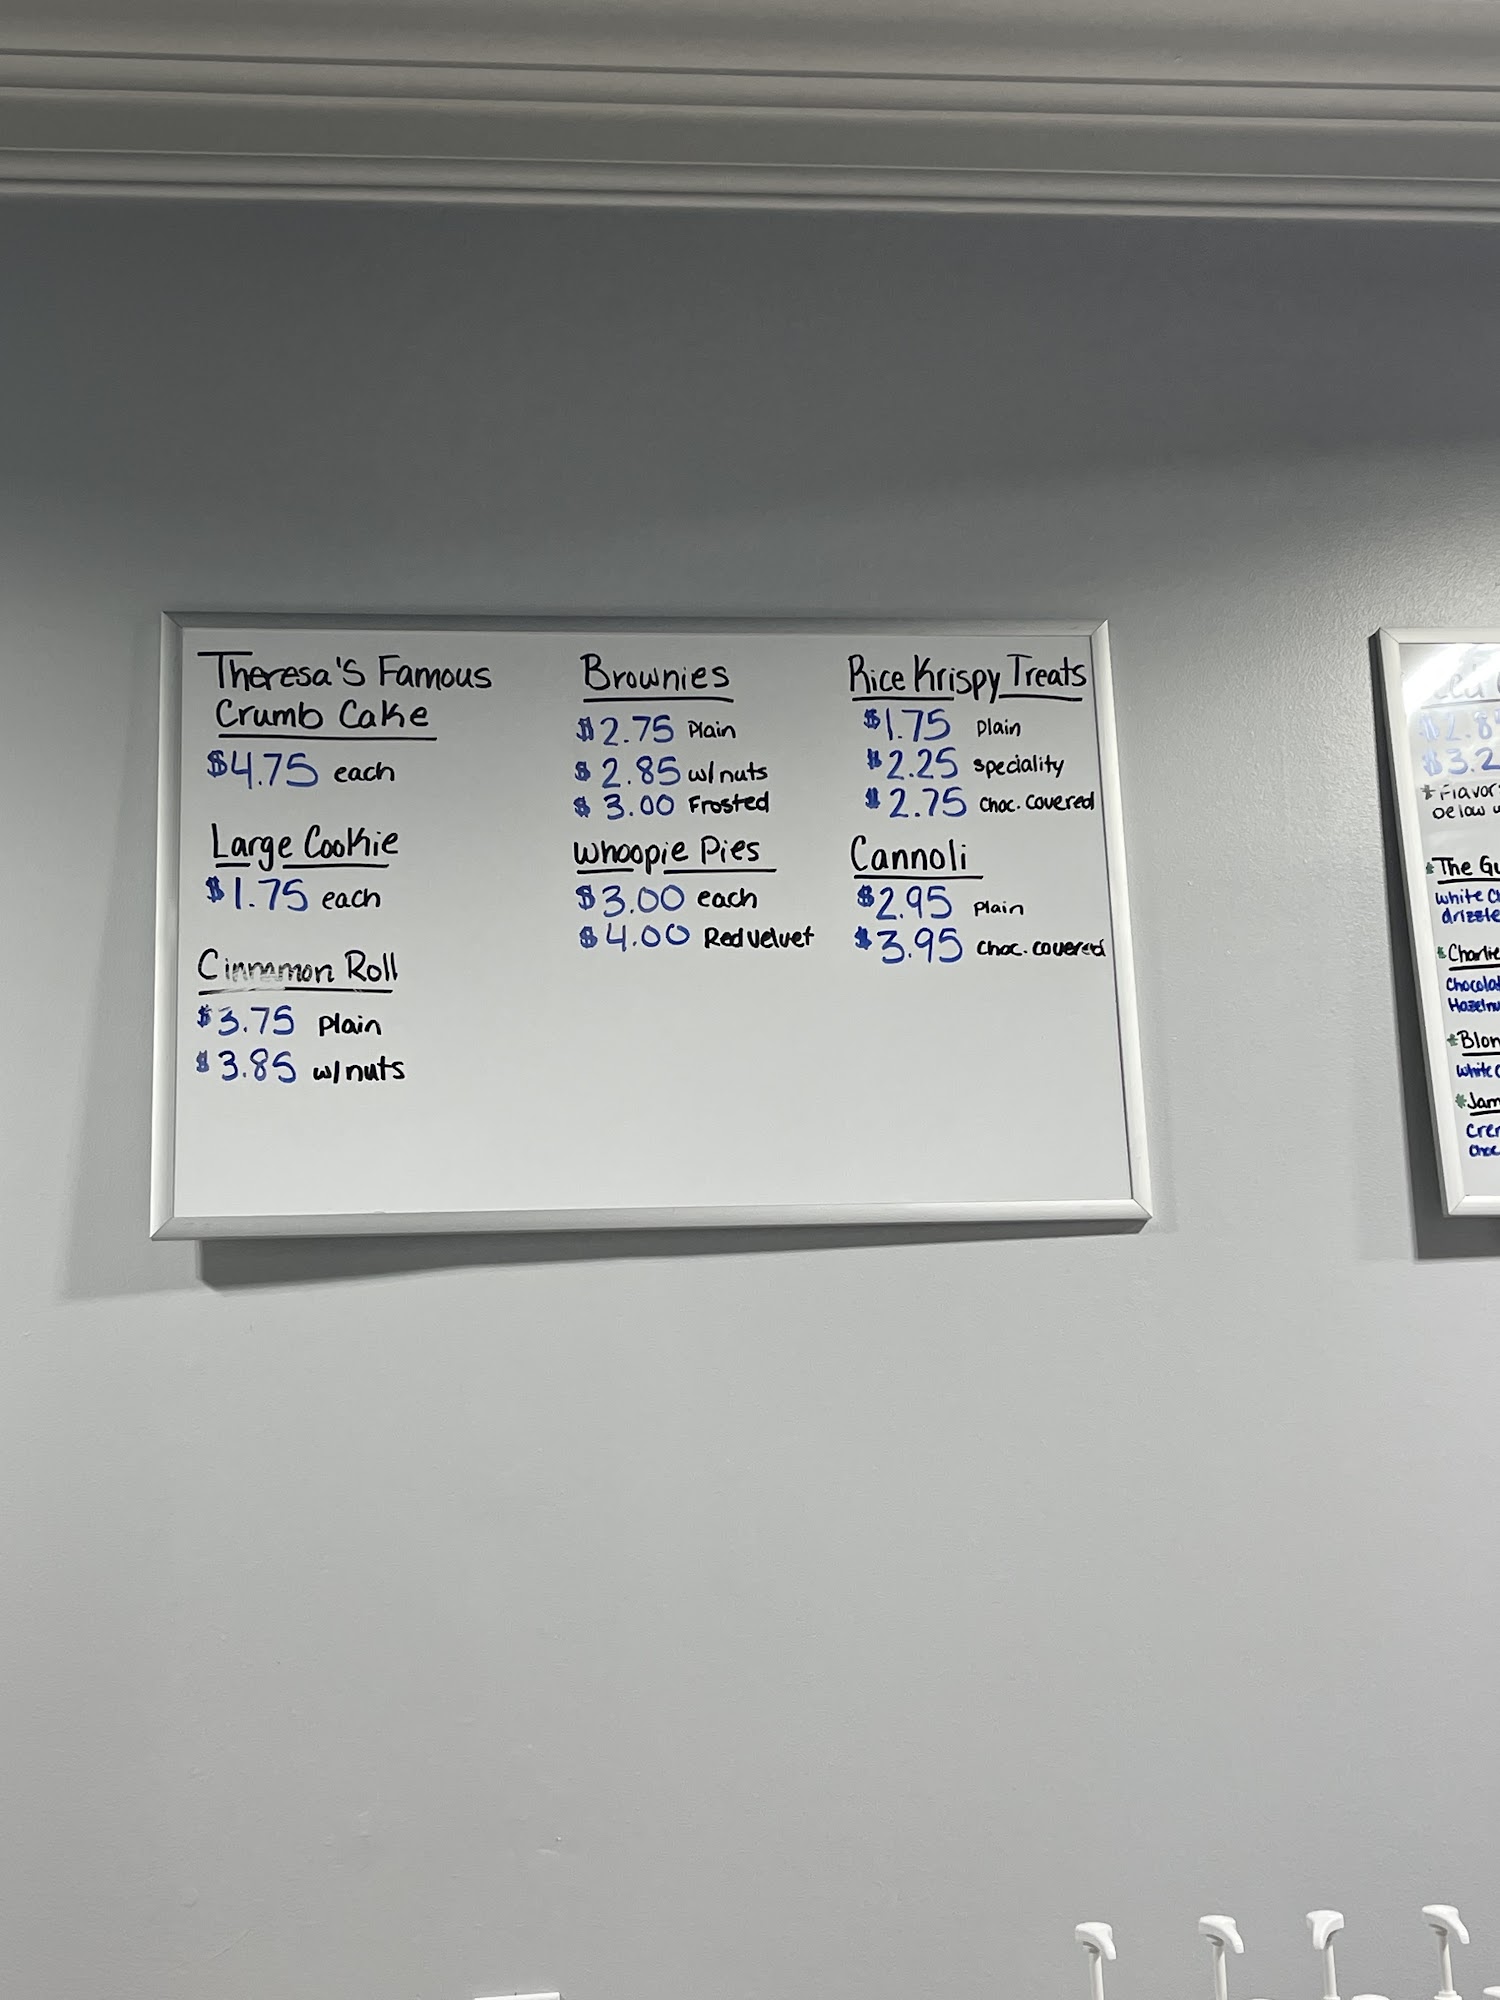 Theresa's Famous
Crumb Cake
$4.75 each
Large Cookie
$1.75 each
Cinnamon Roll
$3.75 plain
$3.85 w/nuts
Brownies
$2.75 Plain
$2.85 w/nuts
$3.00 Frosted
Whoopie Pies
$3.00 each
$4.00 Red velvet
Rice Krispy Treats
$1.75 plain
$2.25 speciality
$2.75 choc. covered
Cannoli
$2.95 plain
$3.95 choc. covered
$3.2
*Flavor
below
*The Gu
white C
drizzle
*Charlie
Chocolat
Hazelnu
*Blon
white c
*Jam
Crem
choc